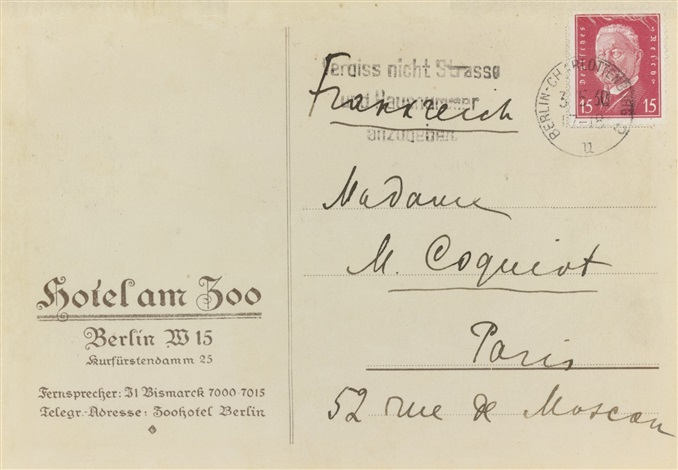 Vergiss nicht Strasse
und Hausnummer
anzugeben.
Frankreich
Deutsches Reich
15 15
BERLIN-CHARLOTTENBURG
30
u
Madame
M. Coquiot
Paris
52 rue de Moscou
Hotel am Zoo
Berlin W 15
Kurfürstendamm 25
Fernsprecher: J1 Bismarck 7000-7015
Telegr.-Adresse: Zoohotel Berlin